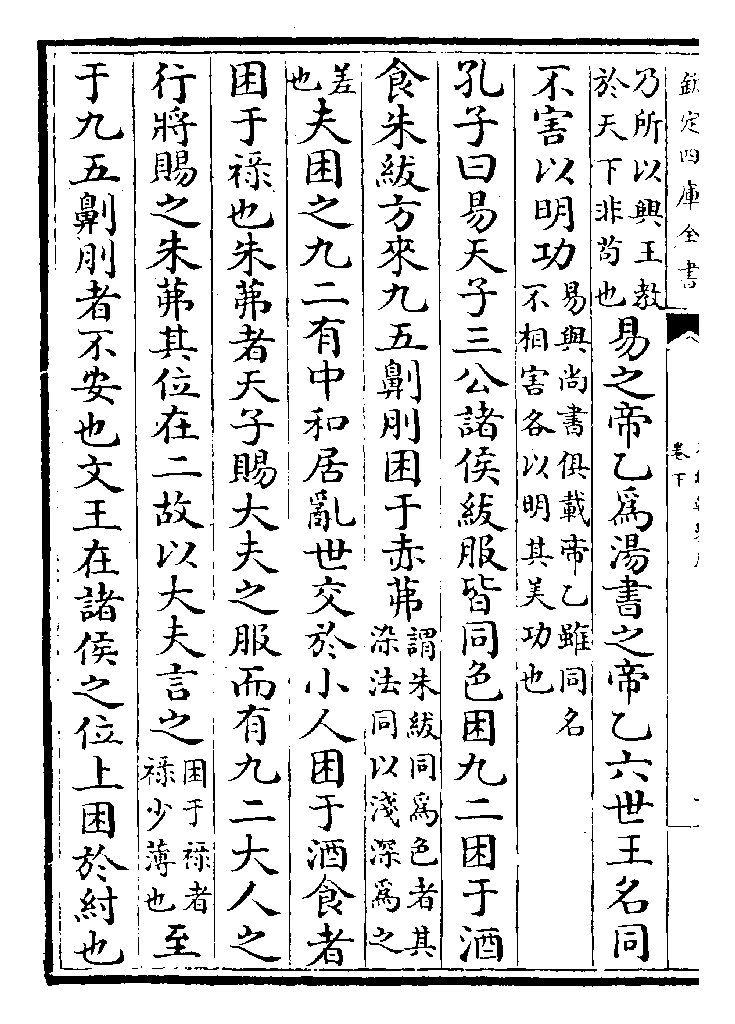 欽定四庫全書
卷下
乃所以興王教
於天下非苟也
易之帝乙爲湯書之帝乙六世王名同
不害以明功
易與尚書俱載帝乙雖同名
不相害各以明其美功也
孔子曰易天子三公諸侯紱服皆同色困九二困于酒
食朱紱方來九五劓刖困于赤茀
謂朱紱同爲色者其
染法同以淺深爲之
差
也
夫困之九二有中和居亂世交於小人困于酒食者
困于祿也朱茀者天子賜大夫之服而有九二大人之
行將賜之朱茀其位在二故以大夫言之
困于祿者
祿少薄也
至
于九五劓刖者不安也文王在諸侯之位上困於紂也